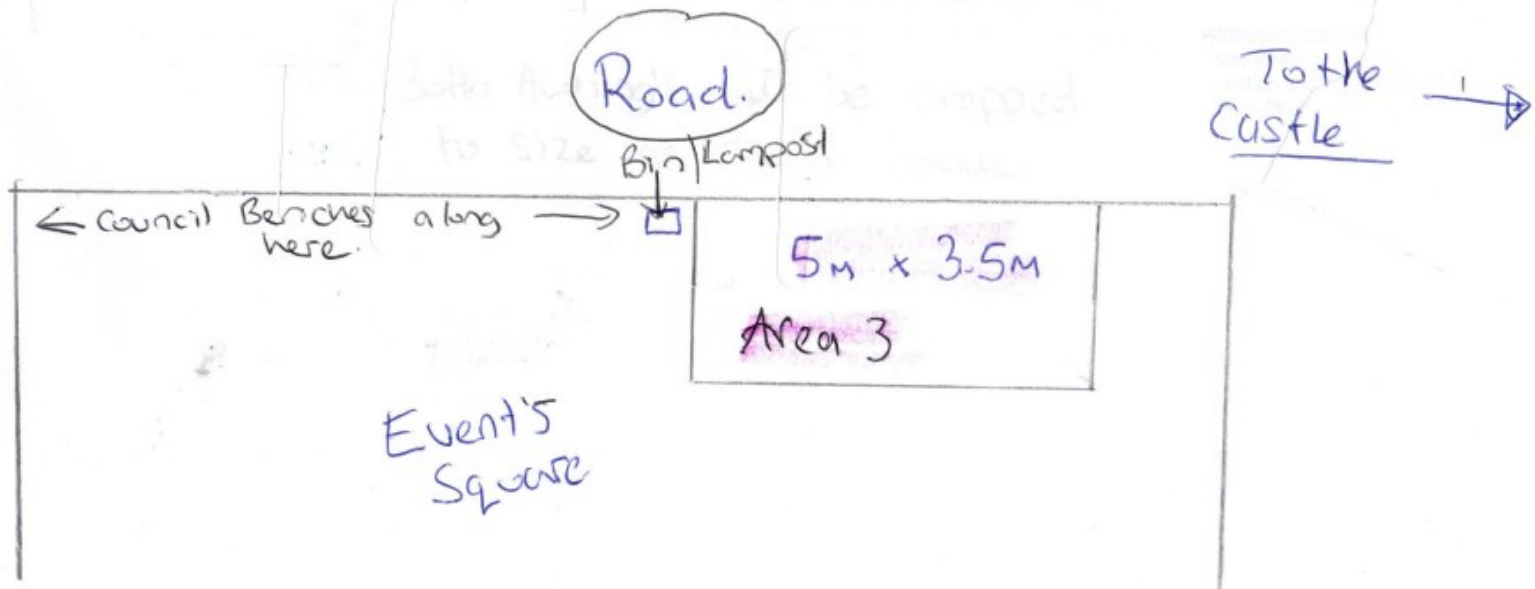 Road.
To the
Castle
Bin
Lampost
Council Benches along
here.
5m x 3.5m
Area 3
Event's
Square